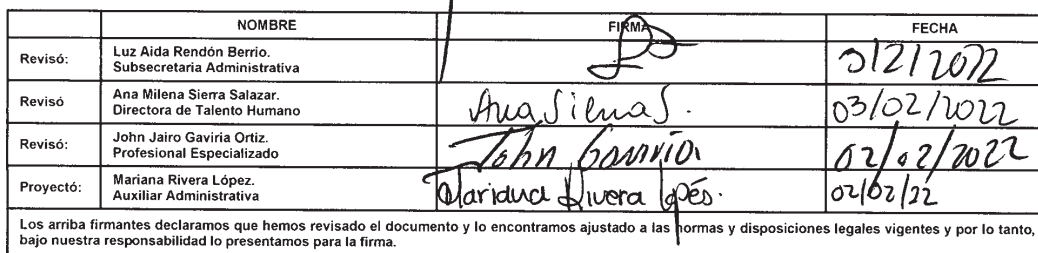 NOMBRE FIRMA FECHA
Revisó: Luz Aida Rendón Berrio. Subsecretaria Administrativa 3/2/2022
Revisó Ana Milena Sierra Salazar. Directora de Talento Humano Ana Sierra S. 03/02/2022
Revisó: John Jairo Gaviria Ortiz. Profesional Especializado John Gaviria 02/02/2022
Proyectó: Mariana Rivera López. Auxiliar Administrativa Mariana Rivera López. 02/02/22
Los arriba firmantes declaramos que hemos revisado el documento y lo encontramos ajustado a las normas y disposiciones legales vigentes y por lo tanto,
bajo nuestra responsabilidad lo presentamos para la firma.